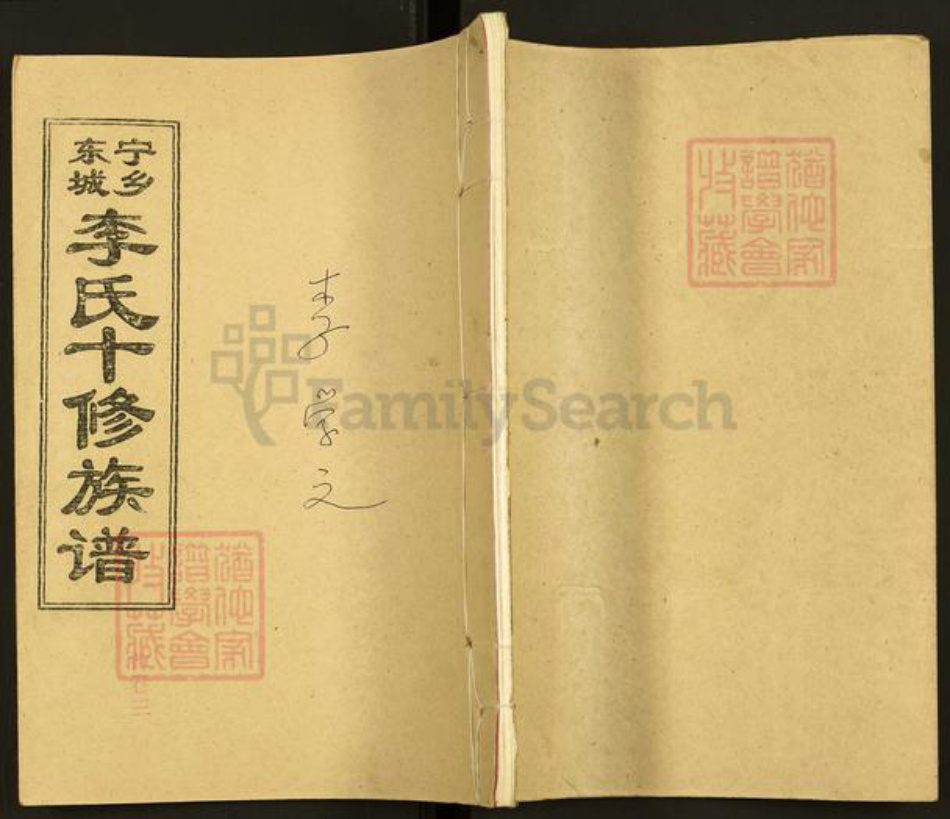 宁乡
东城
李氏十修族谱
李学文
FamilySearch
猶他家
譜學會
收藏
猶他家
譜學會
收藏